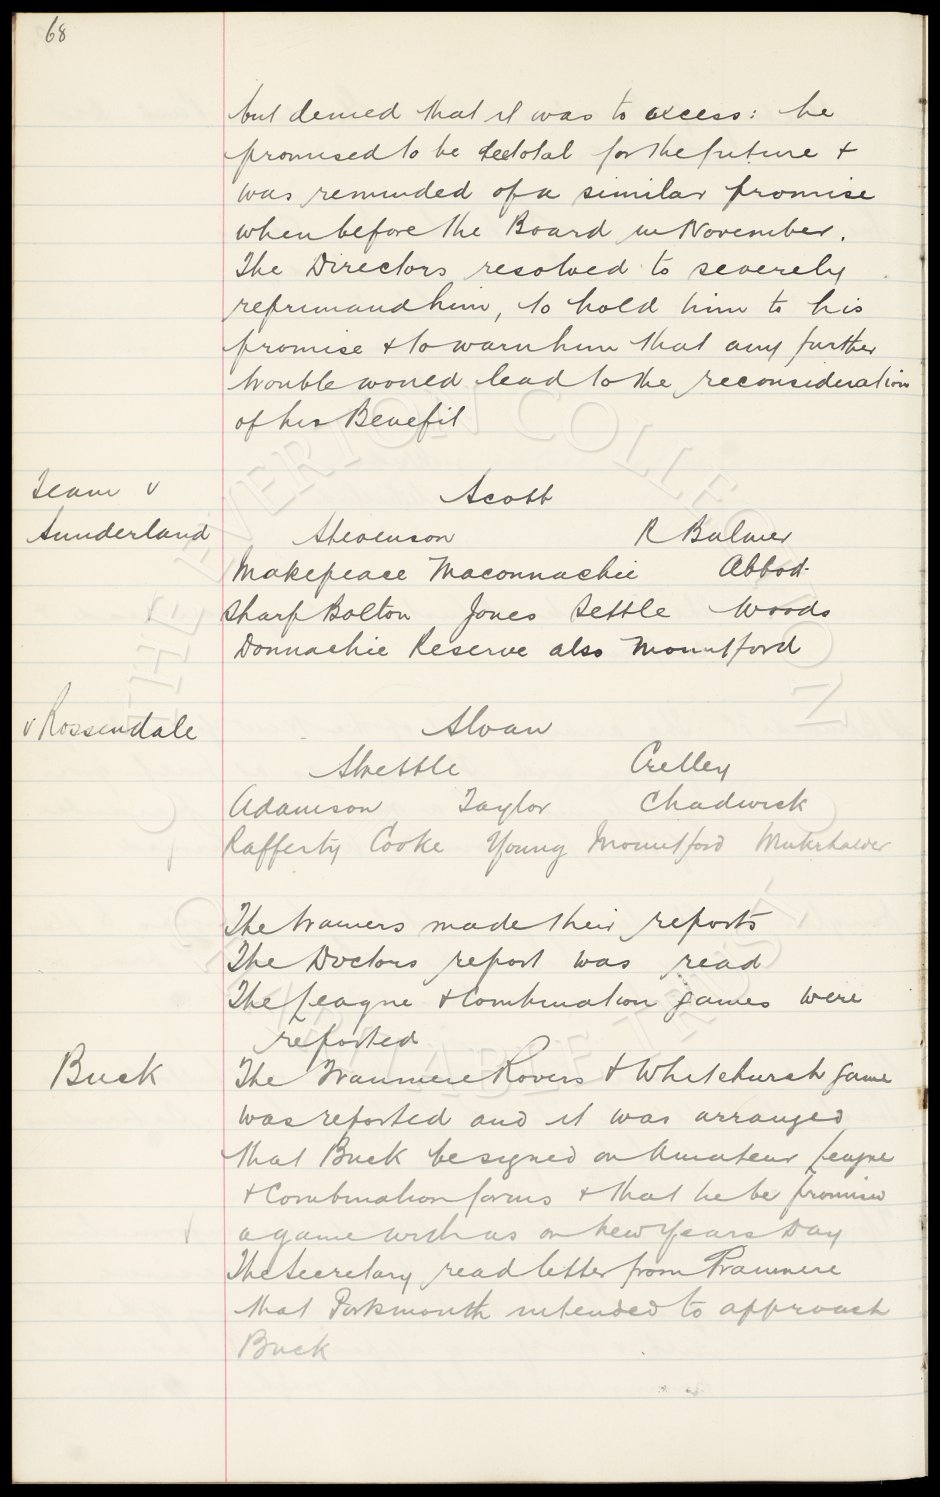 68
but denied that it was to excess: he
promised to be teetotal for the future +
was reminded of a similar promise
when before the Board in November.
The Directors resolved to severely
reprimand him, to hold him to his
promise + to warn him that any further
trouble would lead to the reconsideration
of his Benefit
Team v
Sunderland
Scott
Stevenson R Balmer
Makepeace Maconnachie Abbott
Sharp Bolton Jones Settle Woods
Donnachie Reserve also Mountford
v Rossendale
Sloan
Strettle Crelley
Adamson Taylor Chadwick
Rafferty Cooke Young Mountford
The trainers made their reports
The Doctors report was read
The League + Combination games were
reported
Buck
The Tranmere Rovers + Whitchurch game
was reported and it was arranged
that Buck be signed on Amateur League
+ Combination forms + that he be promised
a game with us on New Years Day
The Secretary read letter from Tranmere
that Portsmouth intended to approach
Buck
THE EVERTON COLLECTION
CHARITABLE TRUST